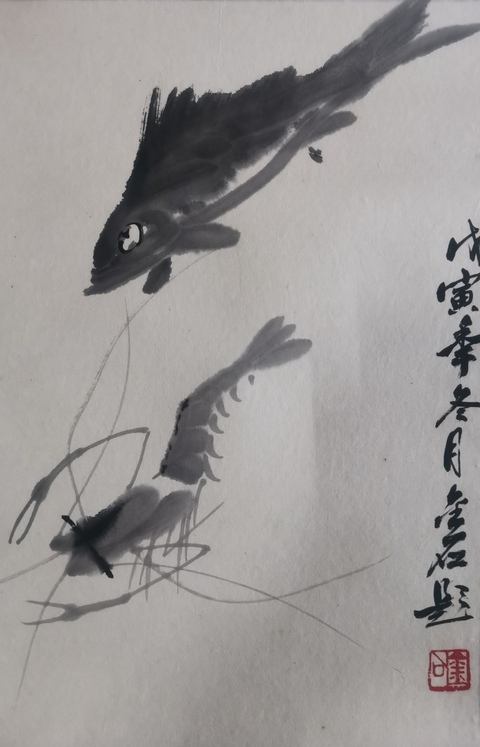 戊寅年冬月金石题